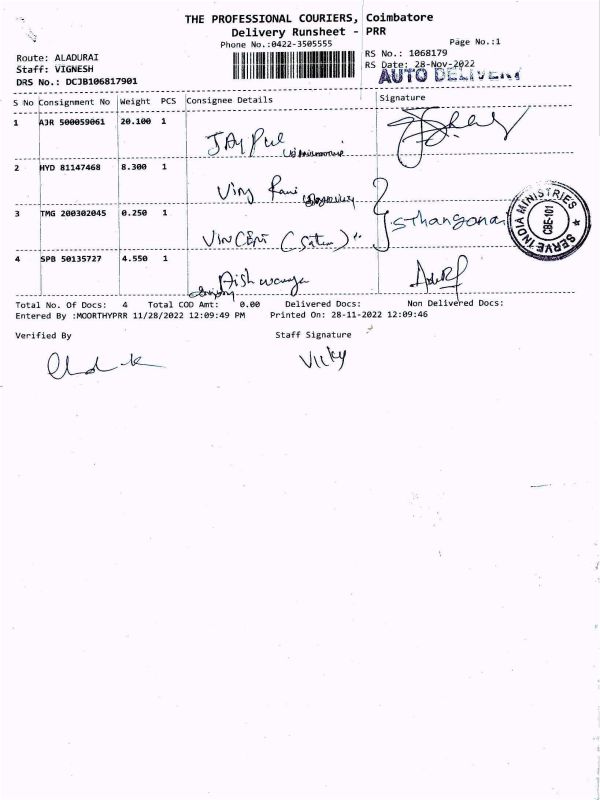 THE PROFESSIONAL COURIERS, Coimbatore
Delivery Runsheet - PRR
Phone No.:0422-3505555
Page No.:1
Route: ALADURAI
RS No.: 1068179
Staff: VIGNESH
RS Date: 28-Nov-2022
DRS No.: DCJB106817901
AUTO DELIVERY
S No Consignment No Weight PCS Consignee Details Signature
1 AJR 500059061 20.100 1
2 HYD 81147468 8.300 1
3 TMG 200302045 0.250 1
VINCENT
SERVE INDIA MINISTRIES
CBE-101
4 SPB 50135727 4.550 1
Aishwarya
Total No. Of Docs: 4 Total COD Amt: 0.00 Delivered Docs: Non Delivered Docs:
Entered By :MOORTHYPRR 11/28/2022 12:09:49 PM Printed On: 28-11-2022 12:09:46
Verified By Staff Signature
Vicky